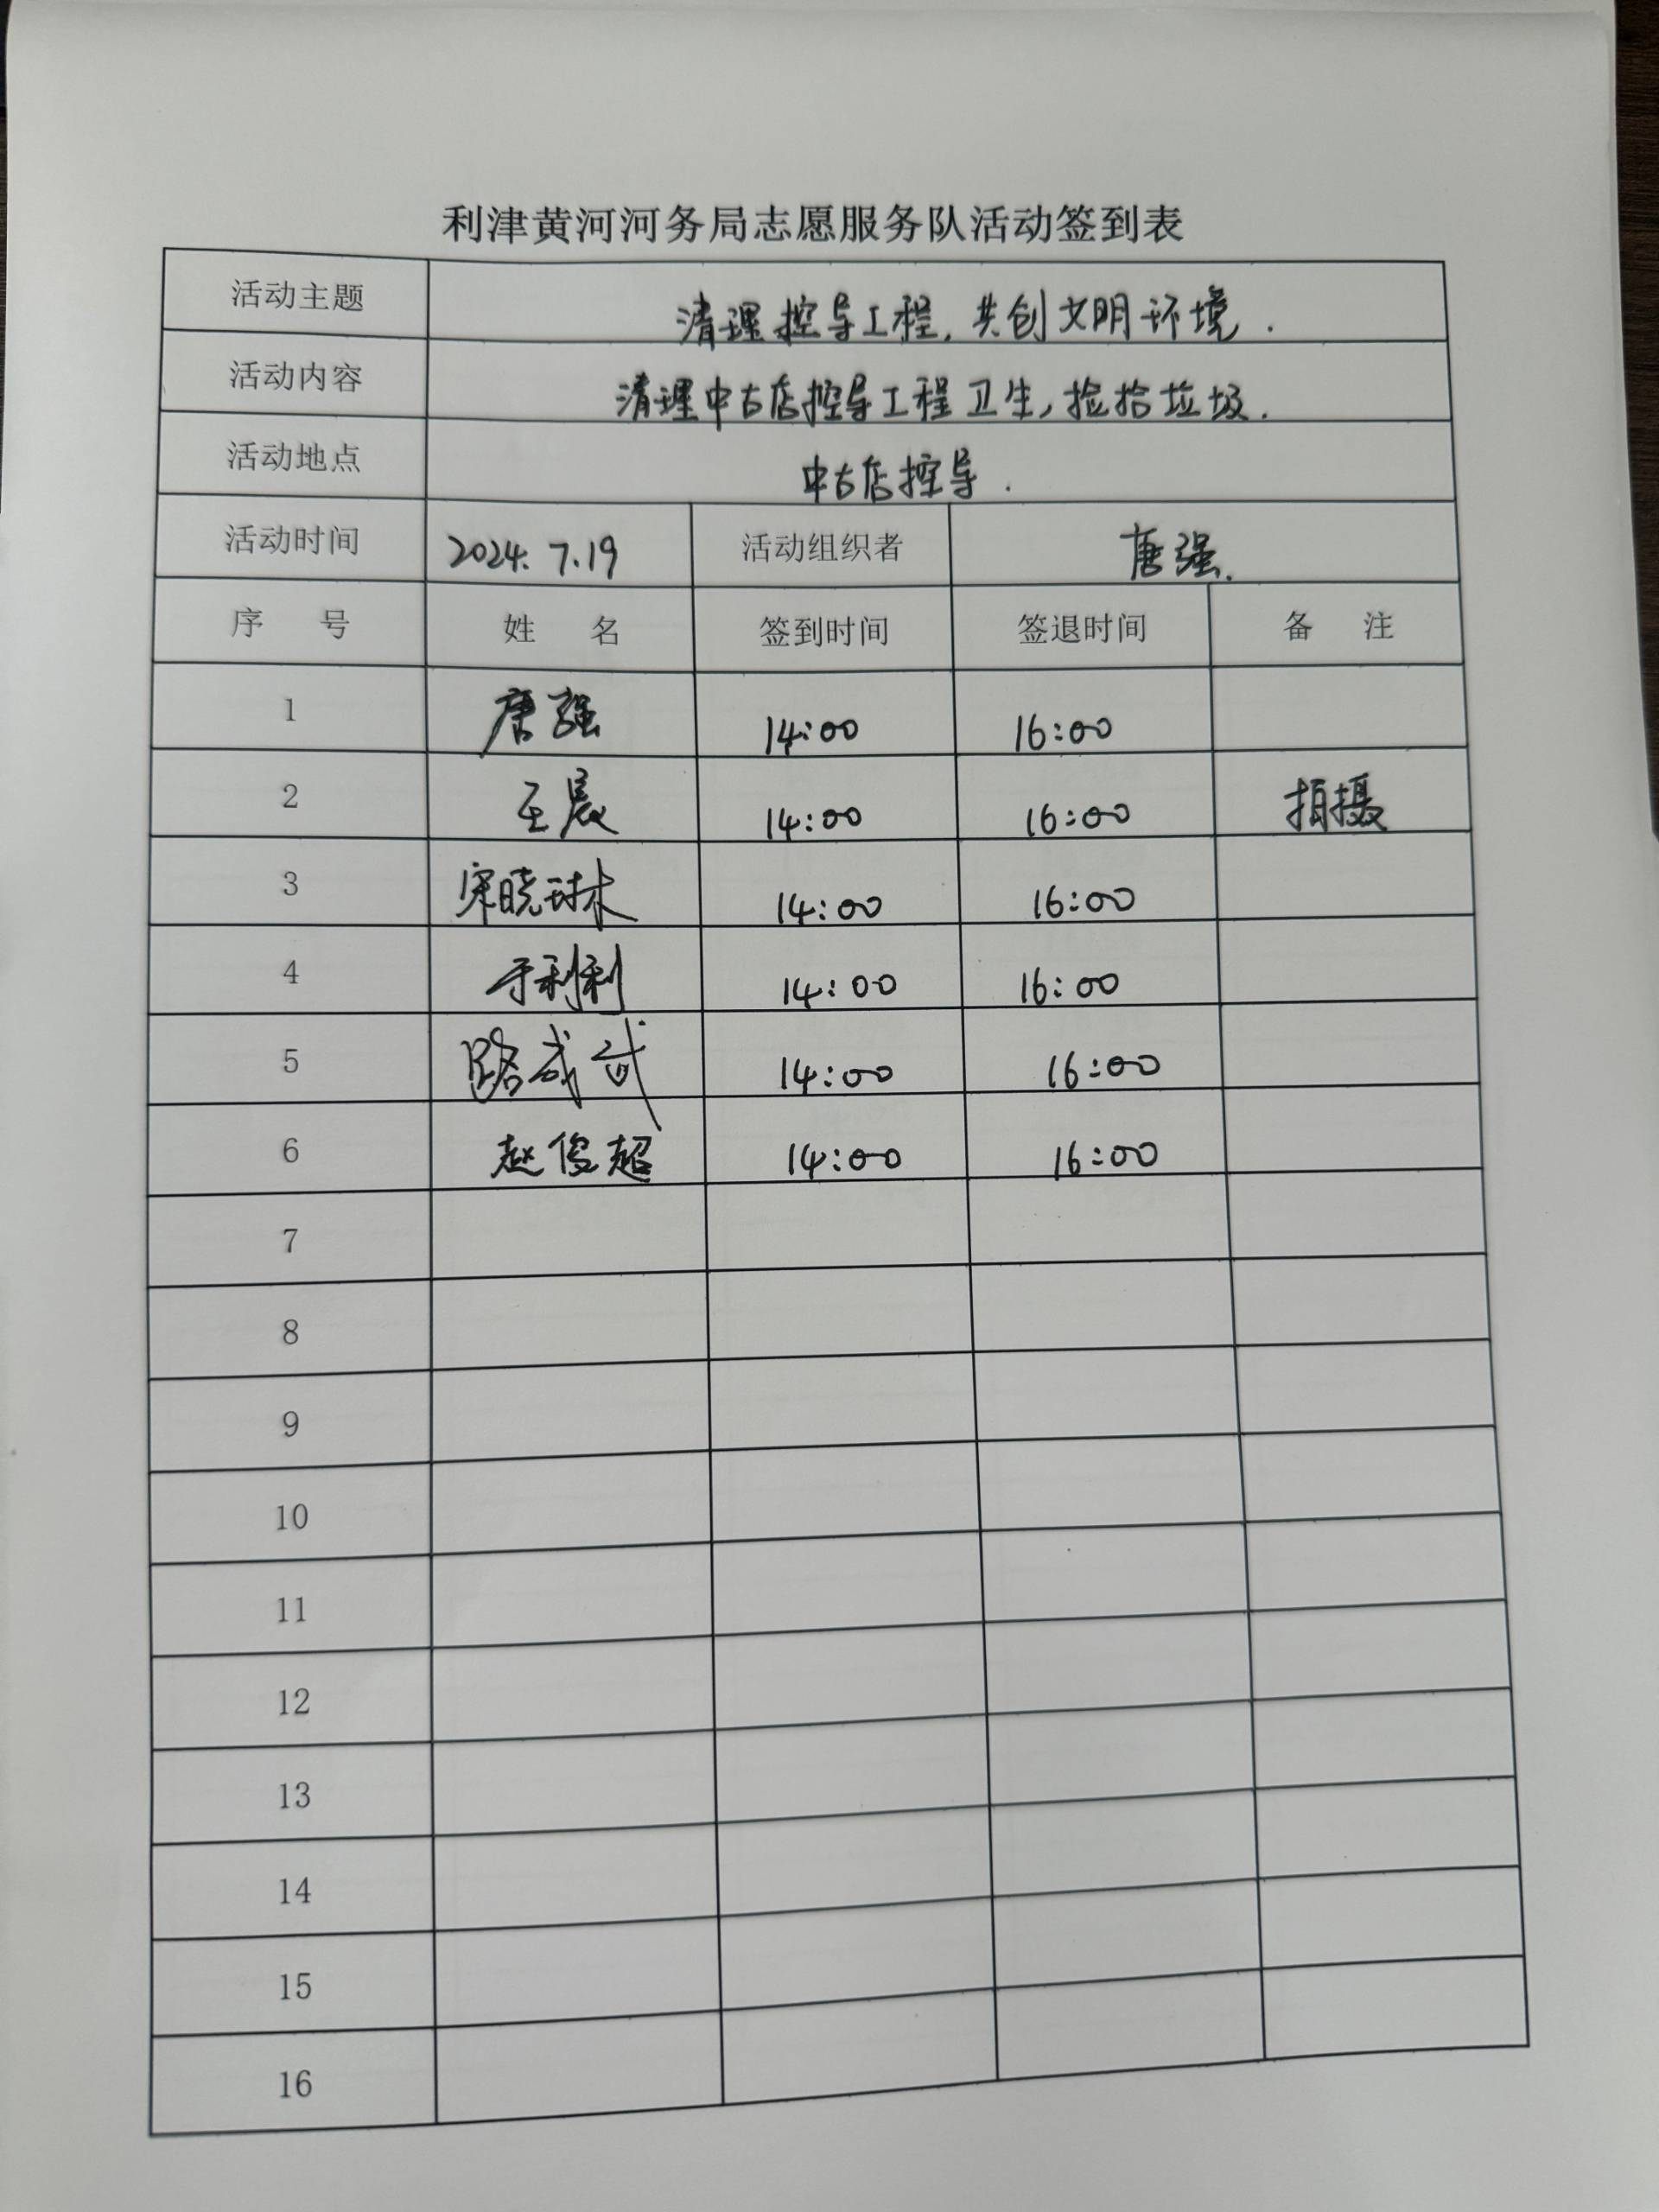 利津黄河河务局志愿服务队活动签到表
活动主题 清理控导工程,共创文明环境.
活动内容 清理中古店控导工程卫生,捡拾垃圾.
活动地点 中古店控导.
活动时间 2024.7.19 活动组织者 唐强.
序 号 姓 名 签到时间 签退时间 备 注
1 唐强 14:00 16:00
2 王晨 14:00 16:00 拍摄
3 宋晓琳 14:00 16:00
4 于利利 14:00 16:00
5 路成武 14:00 16:00
6 赵俊超 14:00 16:00
7
8
9
10
11
12
13
14
15
16